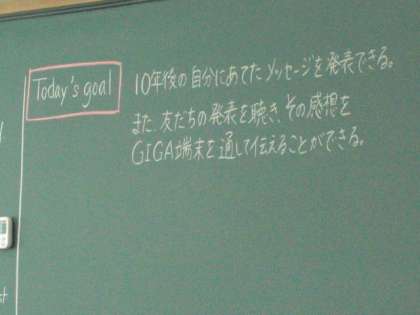 Today's goal
10年後の自分にあてたメッセージを発表できる。
また、友だちの発表を聴き、その感想を
GIGA端末を通して伝えることができる。